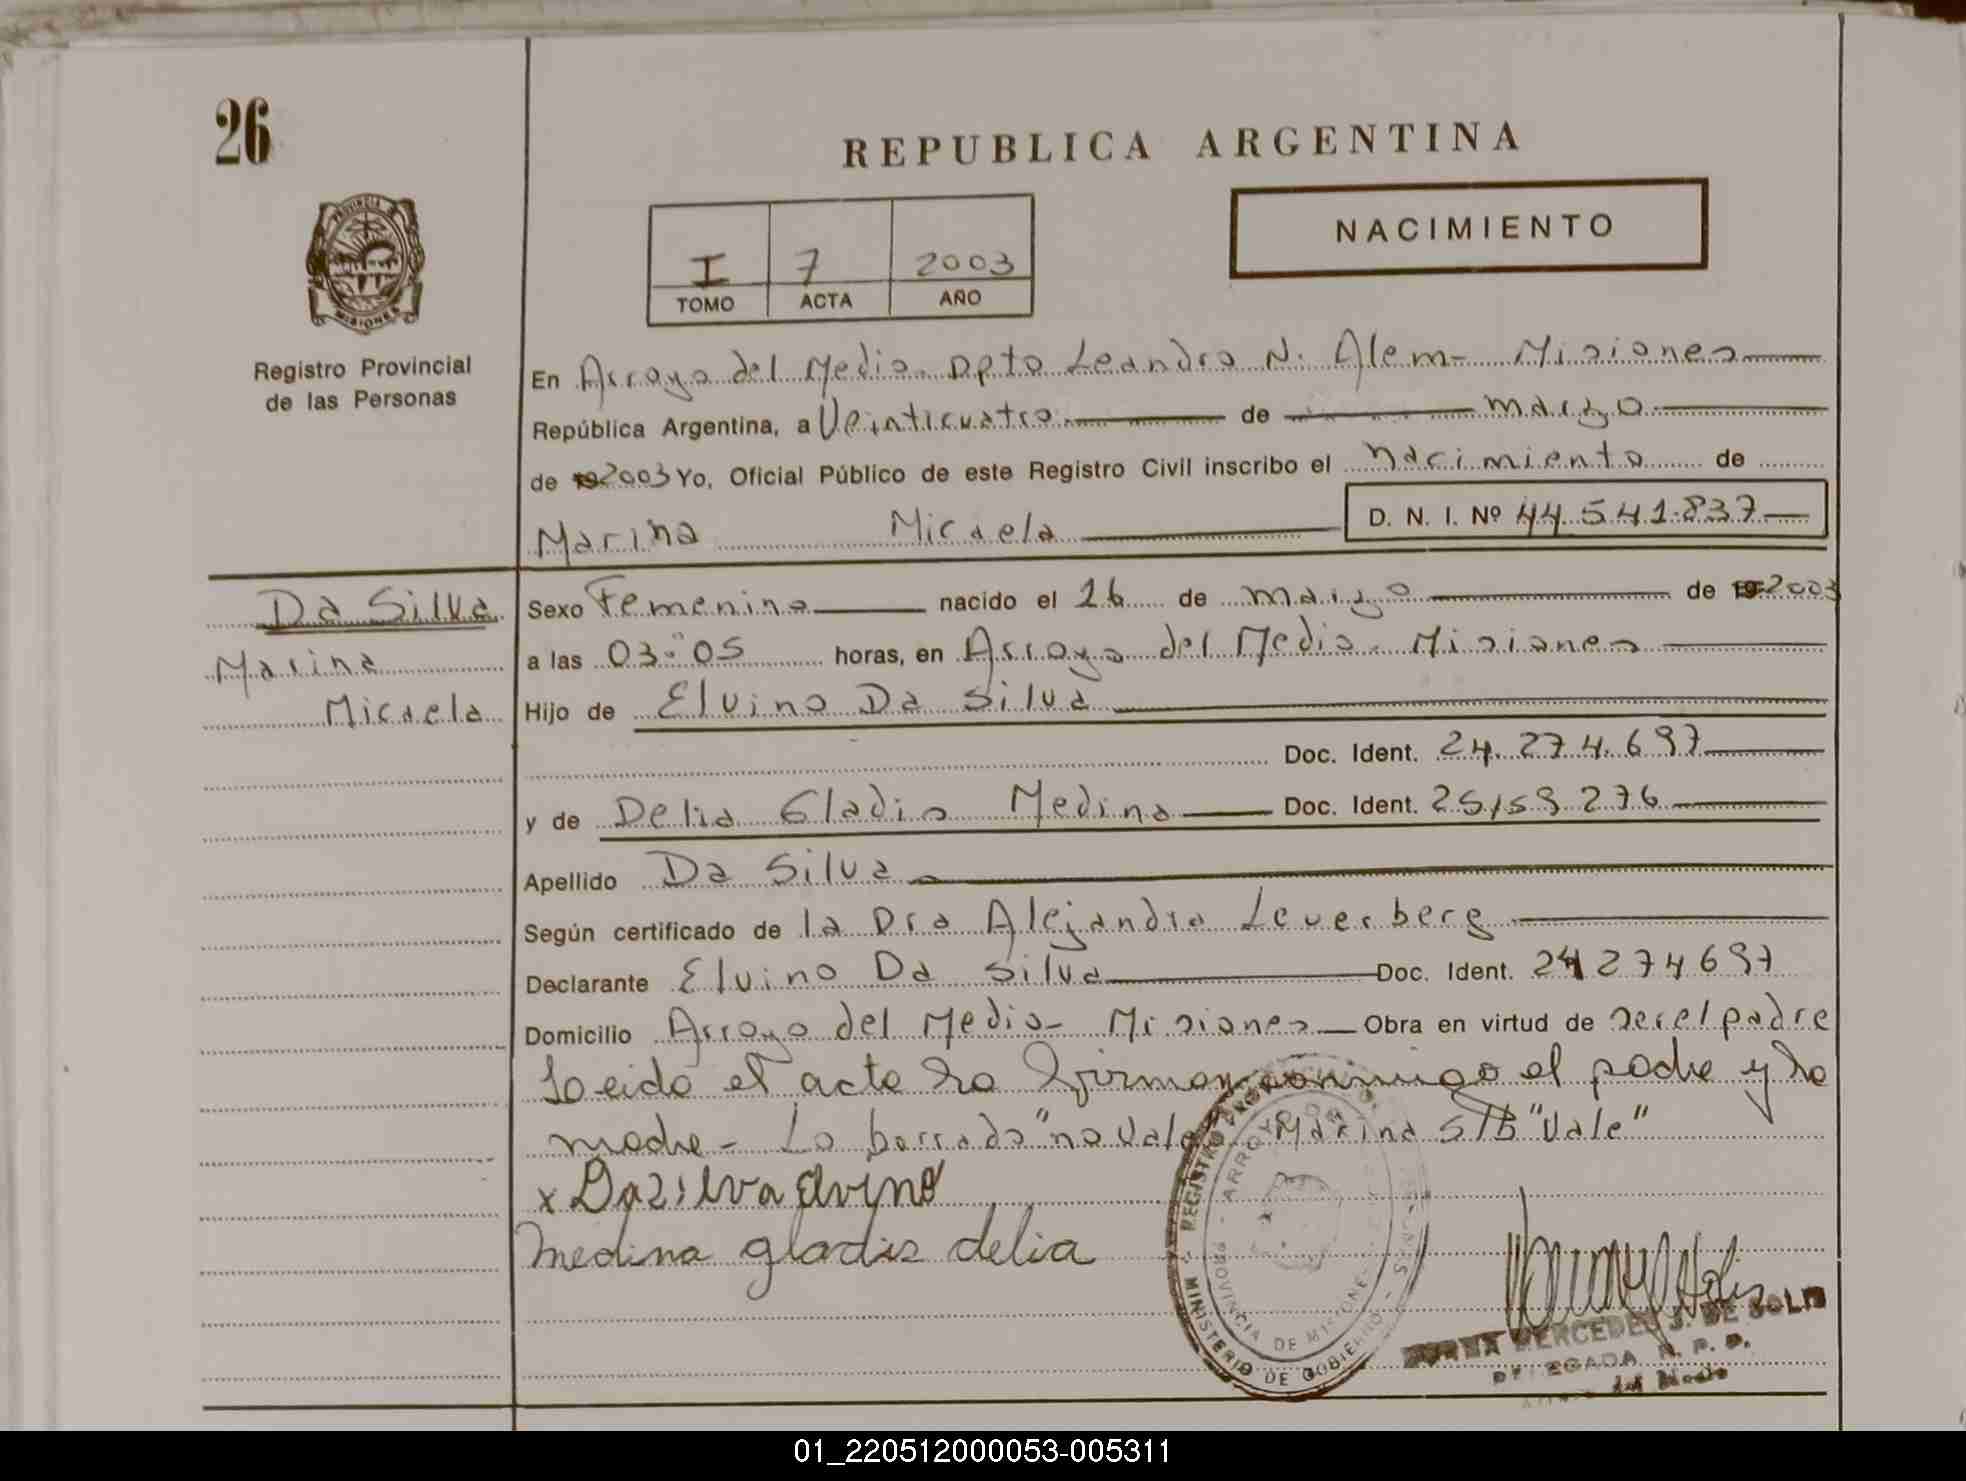 26
REPUBLICA ARGENTINA
NACIMIENTO
PROVINCIA
MISIONES
I 7 2003
TOMO ACTA AÑO
Registro Provincial
de las Personas
En Arroyo del Medio. Dpto Leandro N. Alem - Misiones
República Argentina, a Veinticuatro de marzo
de 192003 Yo, Oficial Público de este Registro Civil inscribo el nacimiento de
Marina Micaela D. N. I. Nº 44.541.837
Da Silva
Marina
Micaela
Sexo Femenino nacido el 16 de marzo de 192003
a las 03:05 horas, en Arroyo del Medio. Misiones
Hijo de Elvino Da Silva
Doc. Ident. 24.274.697
y de Delia Gladis Medina Doc. Ident. 25159276
Apellido Da Silva
Según certificado de la Dra Alejandra Leverberg
Declarante Elvino Da Silva Doc. Ident. 24274697
Domicilio Arroyo del Medio - Misiones Obra en virtud de ser el padre
Leida el acta la firman conmigo el padre y la
madre - Lo borrado "no vale" Marina S/B "Vale"
x Da Silva elvino
Medina gladis delia
REGISTRO
ARROYO DEL
PROVINCIA DE MISIONES
MINISTERIO DE GOBIERNO
MERCEDES J. DE SOLIS
DELEGADA R. P. P.
del Medio
01_220512000053-005311